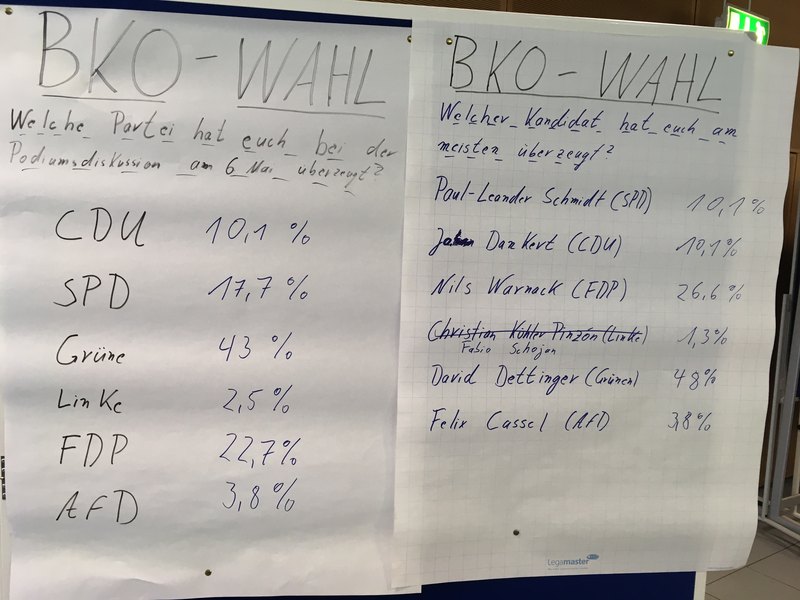 BKO-WAHL
Welche Partei hat euch bei der
Podiumsdiskussion am 6 Mai überzeugt?
CDU 10,1 %
SPD 17,7 %
Grüne 43 %
Linke 2,5 %
FDP 22,7 %
AfD 3,8 %
BKO-WAHL
Welcher Kandidat hat euch am
meisten überzeugt?
Paul-Leander Schmidt (SPD) 10,1 %
Dankert (CDU) 10,1 %
Nils Warnack (FDP) 26,6 %
Christian Kühler Pinzón (Linke) 1,3 %
Fabio Schojan
David Dettinger (Grünen) 48 %
Felix Cassel (AfD 3,8 %
Legamaster